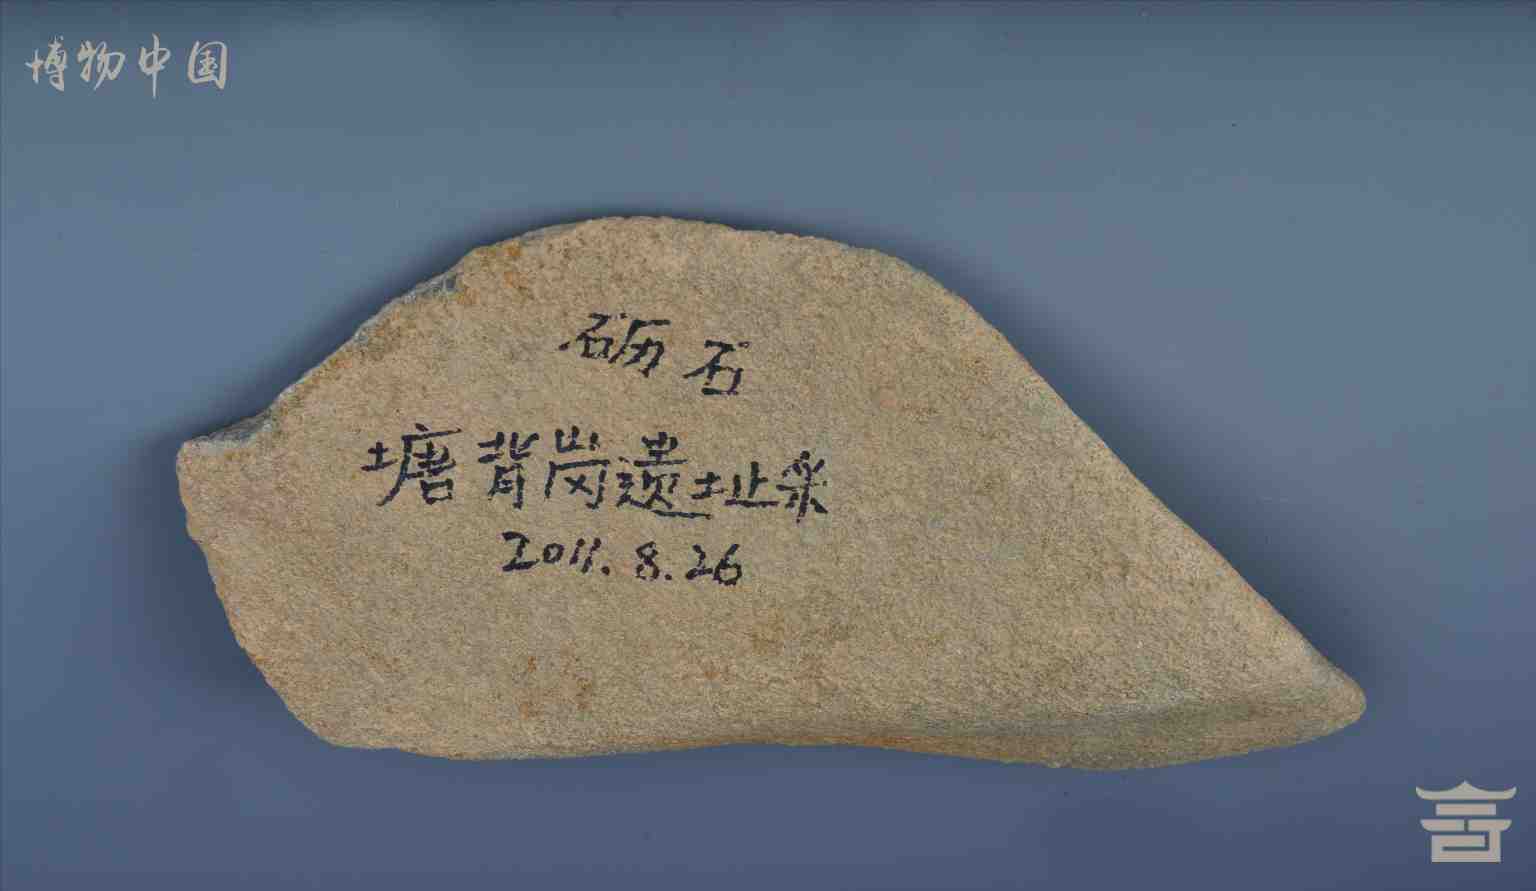 博物中国
砺石
塘背岗遗址采
2011.8.26